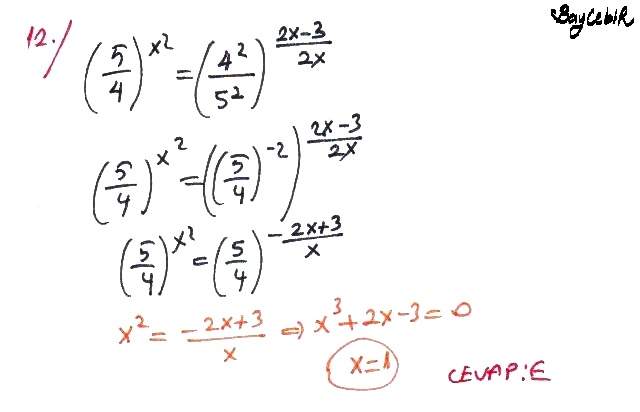 BayCebiR
12./ (5/4)^x^2 = (4^2/5^2)^(2x-3)/(2x)
(5/4)^x^2 = ((5/4)^-2)^(2x-3)/(2x)
(5/4)^x^2 = (5/4)^(-2x+3)/(x)
x^2 = (-2x+3)/(x) ⇒ x^3+2x-3=0
x=1
CEVAP:E